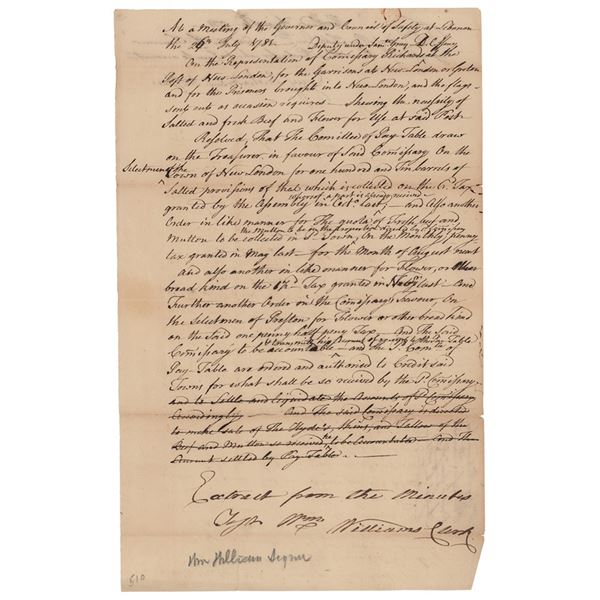 At a Meeting of the Governor and Council of Safety at Lebanon
the 29th July 1781.
Deputy under Saml Gray
On the Representation of Comissary Richards at the
Post of New-London, for the Garrisons at New-London or Groton
and for the Prisoners brought into New-London, and the flags
sent out as occasion requires — Shewing the necessity of
Salted and fresh Beef and Flower for Use at said Post.
Resolved, That the Comittee of Pay-Table draw
on the Treasurer, in favour of said Comissary On the
Selectmen of the
Town of New-London for one hundred and Ten barrels of
Salted provisions of that which is collected on the Tax
whereof a part is already received
granted by the Assembly in Octr last; — and Also another
Order in like manner for The quota of Fresh beef and
the Mutton to be in the proportion
Mutton to be collected in Sd Town, On the Monthly penny
tax granted in may last — for the Month of August next
and also another in like manner for Flower, or other
bread kind on the Tax granted in Feby last — And
Further another Order on the Comissary's Favour, On
the Selectmen of Preston for Flower or other bread kind
on the said one penny half peny Tax, — And The said
Comissary to be accountable — and The Comtee of
Pay-Table are ordered and authorised to Credit said
Towns for what shall be so received by the Sd Comissary,
and to Settle and liquidate the Accounts of Sd Comissary
Accordingly. And the said Comissary is directed
to make sale of The Hyde's, Skins, and Tallow of the
Beef and Mutton so received to be Accountable and the
Account settled by Pay Table. —
Extract from the Minutes
Test Wm Williams Clerk
Wm William Signer
510